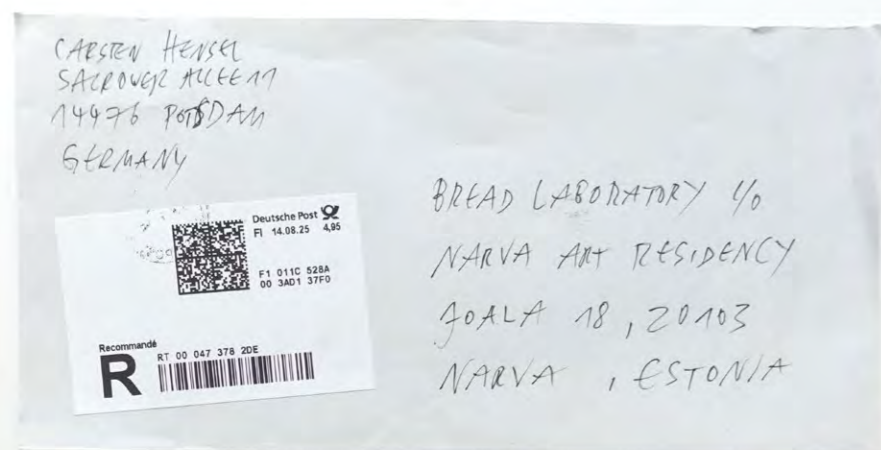 CARSTEN HENSEL
SACROWER ALLEE 11
14476 POTSDAM
GERMANY
Deutsche Post
FI 14.08.25 4,95
F1 011C 528A
00 3AD1 37F0
Recommandé
R
RT 00 047 378 2DE
BREAD LABORATORY c/o
NARVA ART RESIDENCY
JOALA 18, 20103
NARVA, ESTONIA